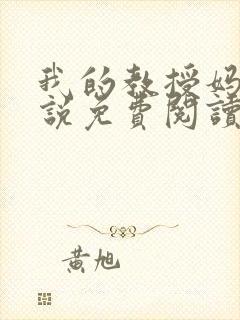 我的教授妈
说免費閱讀
黄旭